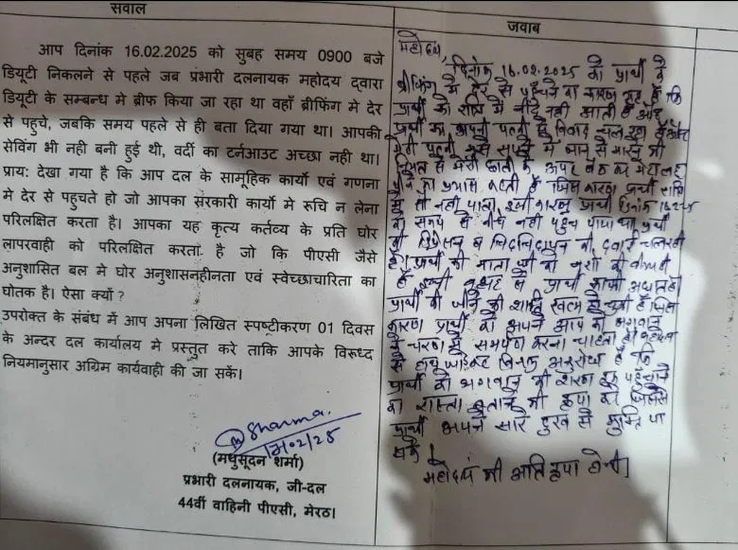 सवाल
आप दिनांक 16.02.2025 को सुबह समय 0900 बजे
डियूटी निकलने से पहले जब प्रभारी दलनायक महोदय द्वारा
डियूटी के सम्बन्ध मे ब्रीफ किया जा रहा था वहाँ ब्रीफिंग मे देर
से पहुचे, जबकि समय पहले से ही बता दिया गया था। आपकी
सेविंग भी नही बनी हुई थी, वर्दी का टर्नआउट अच्छा नही था।
प्राय: देखा गया है कि आप दल के सामूहिक कार्यो एवं गणना
मे देर से पहुचते हो जो आपका सरकारी कार्यो मे रुचि न लेना
परिलक्षित करता है। आपका यह कृत्य कर्तव्य के प्रति घोर
लापरवाही को परिलक्षित करता है जो कि पीएसी जैसे
अनुशासित बल मे घोर अनुशासनहीनता एवं स्वेच्छाचारिता का
घोतक है। ऐसा क्यों ?
उपरोक्त के संबंध में आप अपना लिखित स्पष्टीकरण 01 दिवस
के अन्दर दल कार्यालय मे प्रस्तुत करे ताकि आपके विरूध्द
नियमानुसार अग्रिम कार्यवाही की जा सकें।
Sharma
(मधुसूदन शर्मा)
प्रभारी दलनायक, जी-दल
44वीं वाहिनी पीएसी, मेरठ।
जवाब
महोदय,
दिनांक 16.02.2025 को प्रार्थी के
ब्रीफिंग में देर से पहुँचने का कारण यह है कि
प्रार्थी को रात्रि में नींद नही आती है
प्रार्थी का अपनी पत्नी से विवाद चल रहा है
पत्नी सपने में
मेरी छाती के ऊपर बैठ कर मेरा खून
पीने का प्रयास करती है जिस कारण प्रार्थी रात्रि
में सो नही पाता, इसी कारण प्रार्थी दिनांक 16.2.25
को समय से नही पहुंच पाया था प्रार्थी
की डिप्रेशन व चिडचिडापन की दवाई चल रही
है। प्रार्थी की माता जी को नशो की बीमारी
है प्रार्थी काफी
प्रार्थी की जीने की खत्म हो चुकी है जिस
कारण प्रार्थी अपने आप को भगवान
के चरणो में समर्पण करना चाहता है
से हाथ जोडकर अनुरोध है कि
प्रार्थी को भगवान की शरण में पहुँचाने
का रास्ता बताने की कृपा करे जिससे
प्रार्थी अपने सारे दुख से मुक्ति पा
सके।
महोदय की अति कृपा होगी।